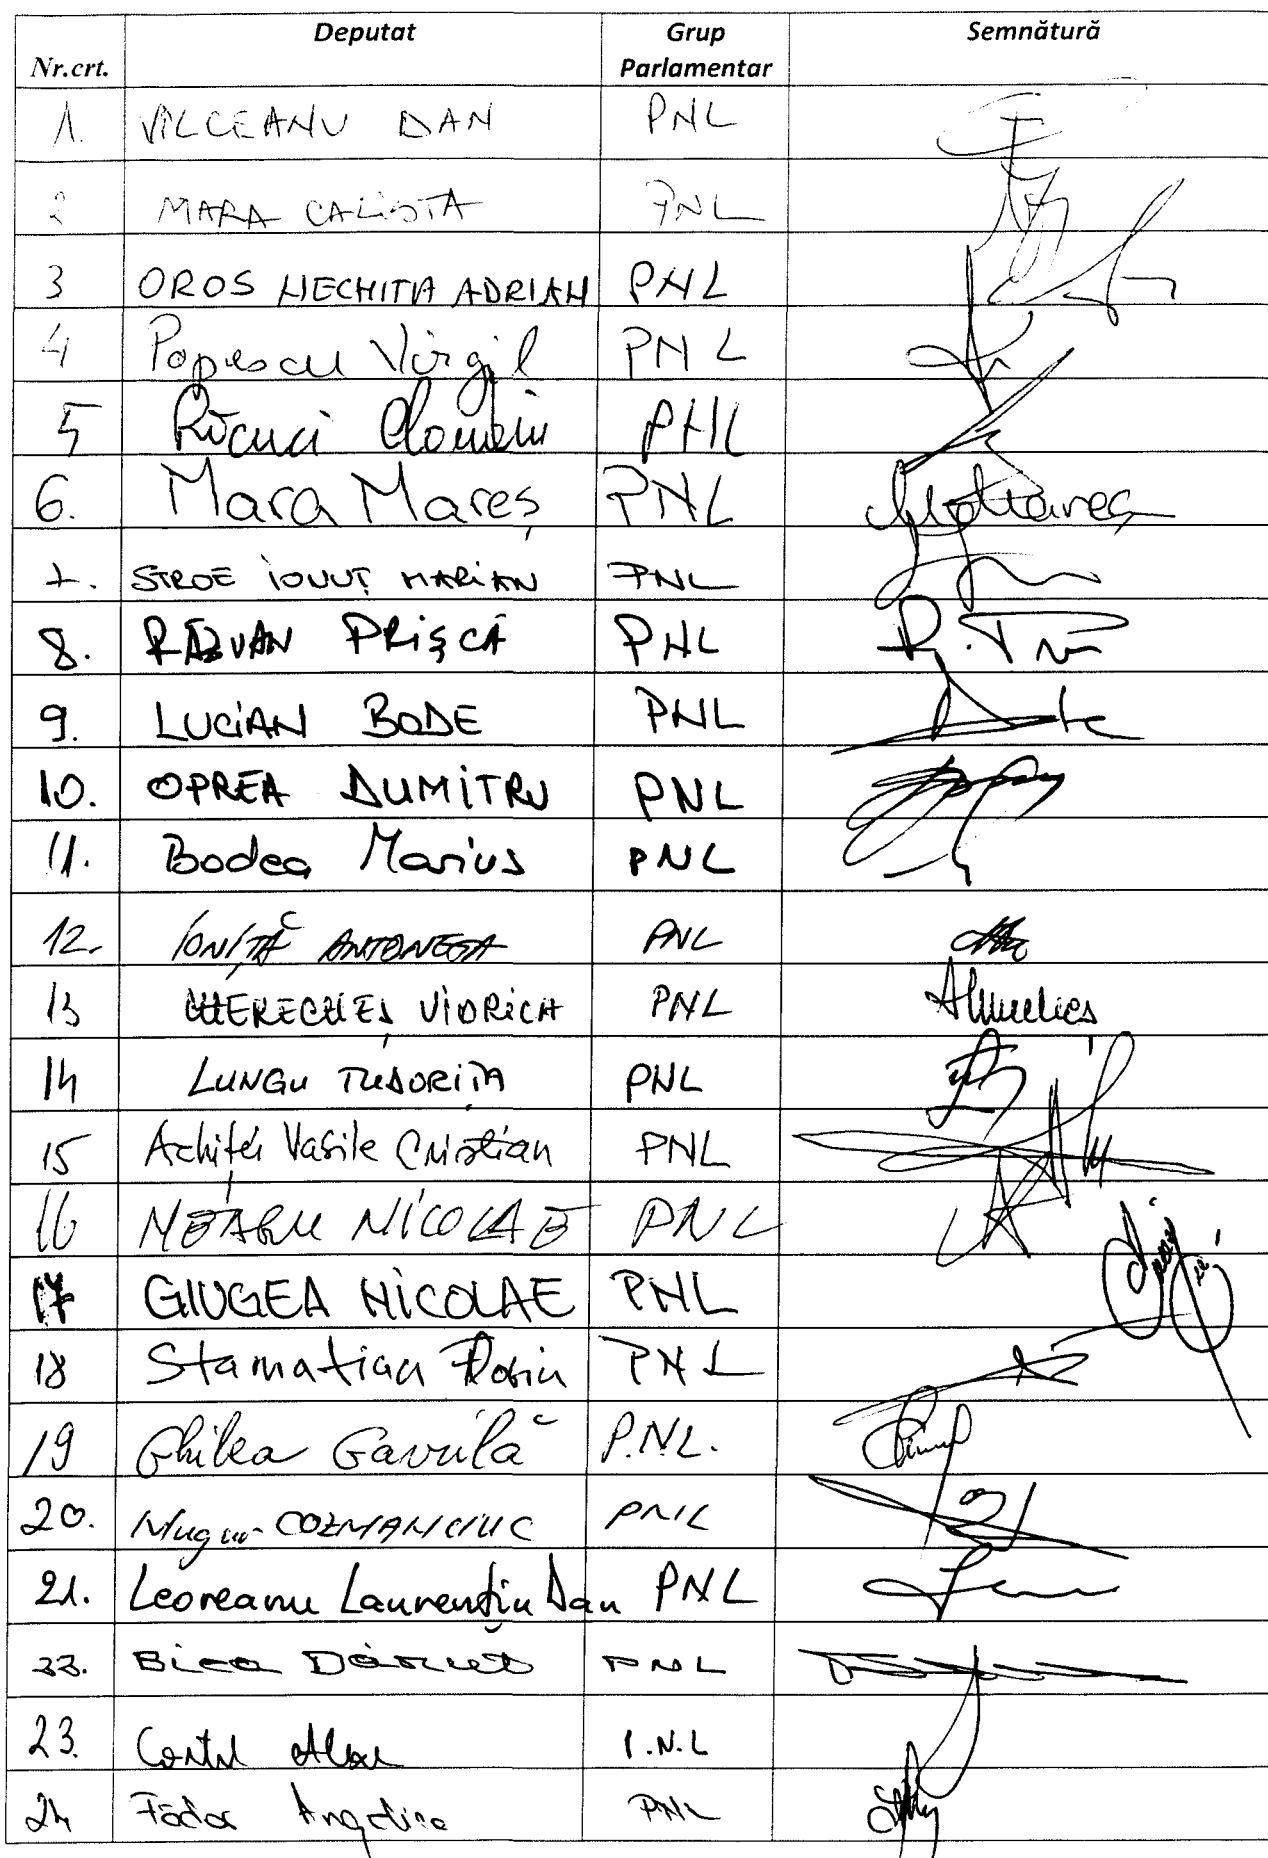 Nr.crt. Deputat Grup Parlamentar Semnătură
1. VILCEANU DAN PNL
2 MARA CALISTA PNL
3 OROS NECHITA ADRIAN PNL
4 Popescu Virgil PNL
5 PNL
6. Mara Mareș PNL
7. STROE IONUȚ MARIAN PNL
8. RĂZVAN PRIȘCĂ PNL
9. LUCIAN BODE PNL
10. OPREA DUMITRU PNL
11. Bodea Marius PNL
12. IONIȚĂ ANTONETA PNL
13 CHERECHEȘ VIORICA PNL
14 LUNGU TUDORIȚA PNL
15 Achiței Vasile Cristian PNL
16 NEAGU NICOLAE PNL
17 GIUGEA NICOLAE PNL
18 Stamatian Florin PNL
19 Ghilea Găvrilă P.N.L.
20. Mugur COZMANCIUC PNL
21. Leoreanu Laurențiu Dan PNL
22. Bica Dănuț PNL
23. P.N.L
24 Fădor Angelica PNL